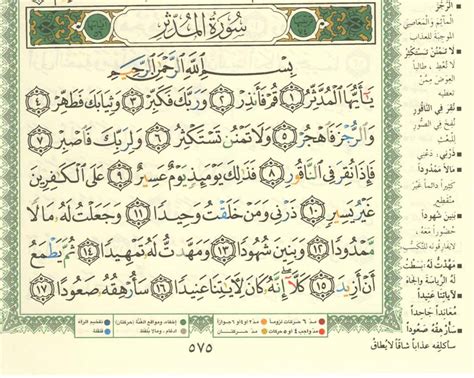 سُورَةُ المُدَّثِّر
بِسْمِ اللَّهِ الرَّحْمَٰنِ الرَّحِيمِ
يَا أَيُّهَا الْمُدَّثِّرُ ١ قُمْ فَأَنْذِرْ ٢ وَرَبَّكَ فَكَبِّرْ ٣ وَثِيَابَكَ فَطَهِّرْ ٤
وَالرُّجْزَ فَاهْجُرْ ٥ وَلَا تَمْنُنْ تَسْتَكْثِرُ ٦ وَلِرَبِّكَ فَاصْبِرْ ٧
فَإِذَا نُقِرَ فِي النَّاقُورِ ٨ فَذَٰلِكَ يَوْمَئِذٍ يَوْمٌ عَسِيرٌ ٩ عَلَى الْكَافِرِينَ
غَيْرُ يَسِيرٍ ١٠ ذَرْنِي وَمَنْ خَلَقْتُ وَحِيدًا ١١ وَجَعَلْتُ لَهُ مَالًا
مَمْدُودًا ١٢ وَبَنِينَ شُهُودًا ١٣ وَمَهَّدْتُ لَهُ تَمْهِيدًا ١٤ ثُمَّ يَطْمَعُ
أَنْ أَزِيدَ ١٥ كَلَّا إِنَّهُ كَانَ لِآيَاتِنَا عَنِيدًا ١٦ سَأُرْهِقُهُ صَعُودًا ١٧
٥٧٥
الرُّجْزَ
المآثم والمعاصي
الموجبة للعذاب
لا تَمْنُنْ تَسْتَكْثِرُ
لا تُعطِ، طالباً
العِوَض ممّن
تعطيه
نُقِرَ في النَّاقُورِ
نُفِخَ في الصّور
ذَرْنِي: دعني
مالاً ممدوداً
كثيراً دائماً غير
منقطع
بنين شهوداً
مَهَّدْتُ لَهُ: بَسَطْتُ
لَهُ الرِّياسة والجاه
لآياتنا عنيداً
مُعانداً جاحداً
سَأُرْهِقُهُ صَعُوداً
سأكلفه عذاباً شاقاً لا يُطاق